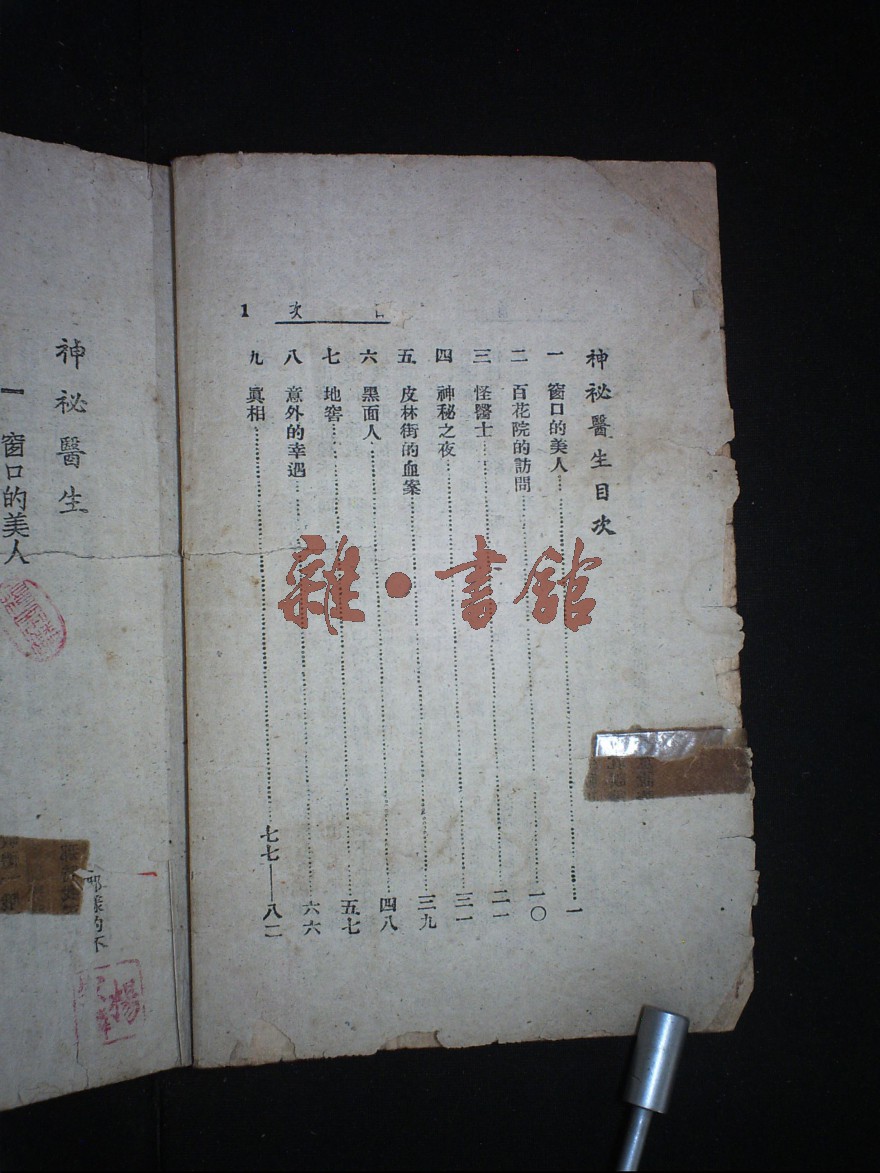 目次
1
神祕醫生目次
一 窗口的美人……一
二 百花院的訪問……一〇
三 怪醫士……二一
四 神秘之夜……三一
五 皮林街的血案……三九
六 黑面人……四八
七 地窖……五七
八 意外的幸遇……六六
九 眞相……七七—八二
雜·書館
神祕醫生
一 窗口的美人
那樣的不
楊